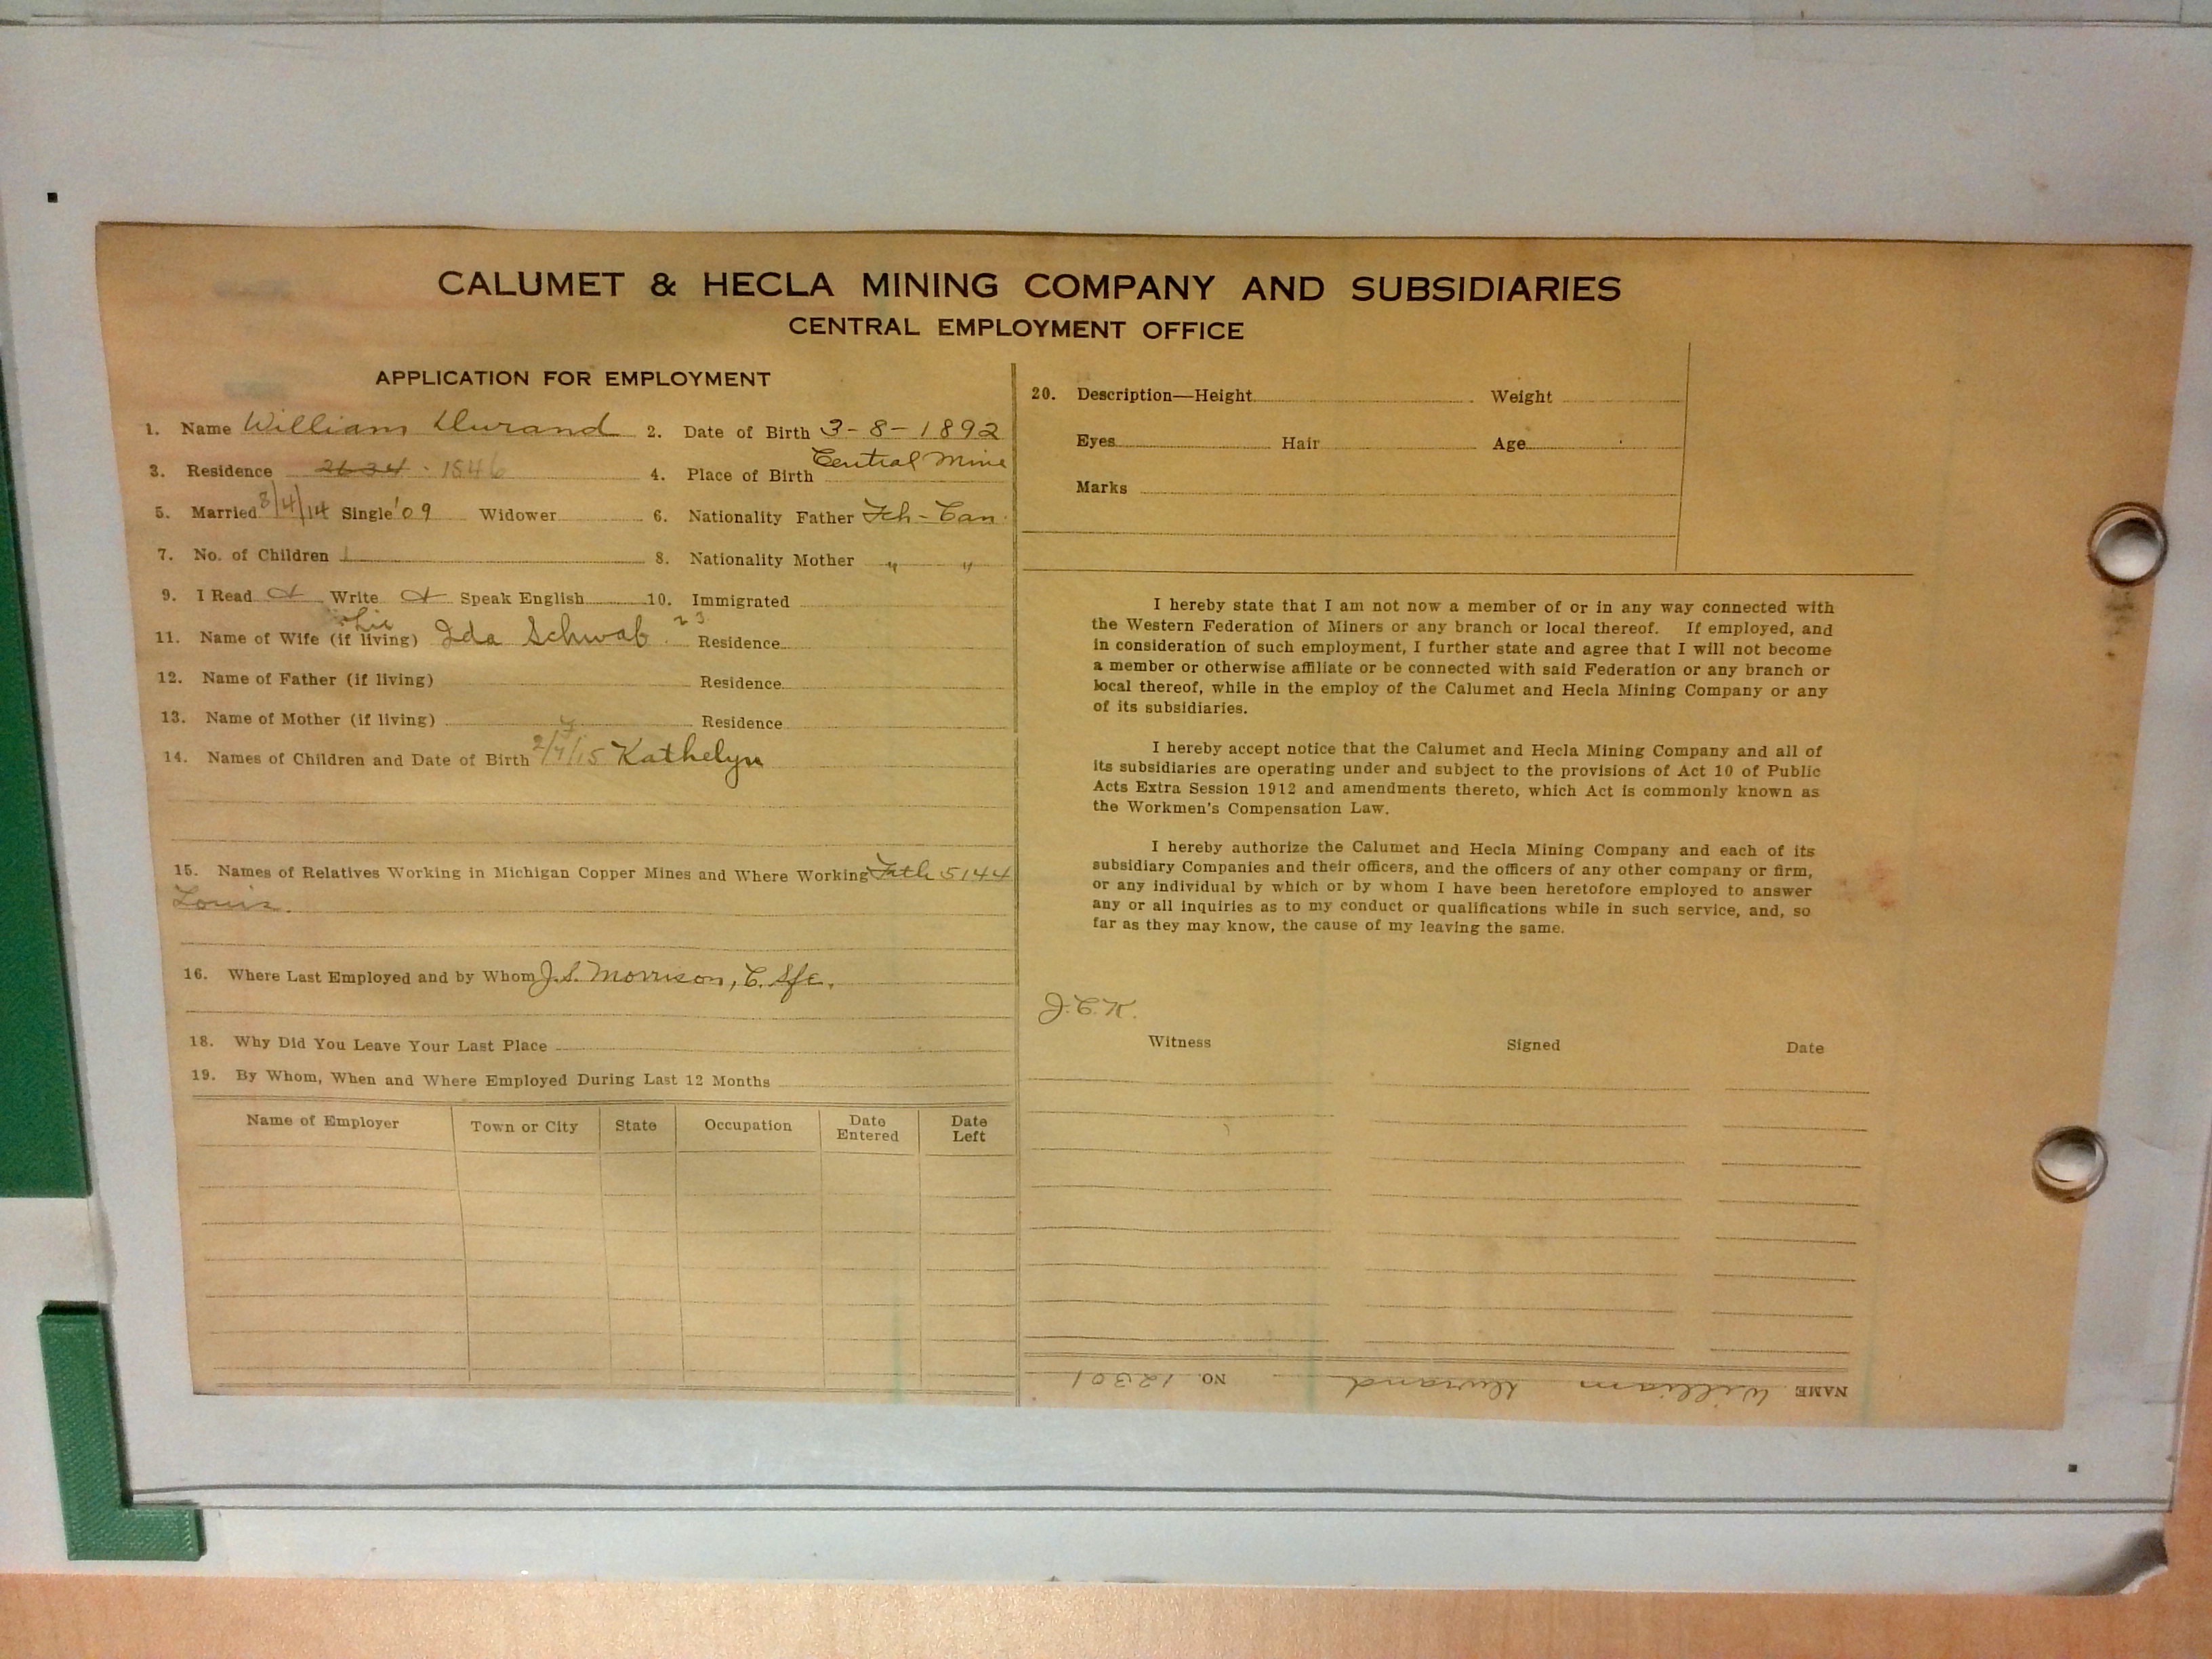 CALUMET & HECLA MINING COMPANY AND SUBSIDIARIES
CENTRAL EMPLOYMENT OFFICE
APPLICATION FOR EMPLOYMENT
1. Name William Durand 2. Date of Birth 3-8-1892
3. Residence 2634 · 1546 4. Place of Birth Central Mine
5. Married 8/4/14 Single '09 Widower 6. Nationality Father Fch-Can.
7. No. of Children 1 8. Nationality Mother " "
9. I Read Write Speak English 10. Immigrated
11. Name of Wife (if living) Ida Schwab 23 Residence
12. Name of Father (if living) Residence
13. Name of Mother (if living) Residence
14. Names of Children and Date of Birth 2/7/15 Kathelyn
15. Names of Relatives Working in Michigan Copper Mines and Where Working Fath 5144
Louis.
16. Where Last Employed and by Whom J.S. Morrison, C.
18. Why Did You Leave Your Last Place
19. By Whom, When and Where Employed During Last 12 Months
Name of Employer Town or City State Occupation Date Entered Date Left
20. Description—Height Weight
Eyes Hair Age
Marks
I hereby state that I am not now a member of or in any way connected with
the Western Federation of Miners or any branch or local thereof. If employed, and
in consideration of such employment, I further state and agree that I will not become
a member or otherwise affiliate or be connected with said Federation or any branch or
local thereof, while in the employ of the Calumet and Hecla Mining Company or any
of its subsidiaries.
I hereby accept notice that the Calumet and Hecla Mining Company and all of
its subsidiaries are operating under and subject to the provisions of Act 10 of Public
Acts Extra Session 1912 and amendments thereto, which Act is commonly known as
the Workmen's Compensation Law.
I hereby authorize the Calumet and Hecla Mining Company and each of its
subsidiary Companies and their officers, and the officers of any other company or firm,
or any individual by which or by whom I have been heretofore employed to answer
any or all inquiries as to my conduct or qualifications while in such service, and, so
far as they may know, the cause of my leaving the same.
J.C.K.
Witness Signed Date
NAME William Durand NO. 12301